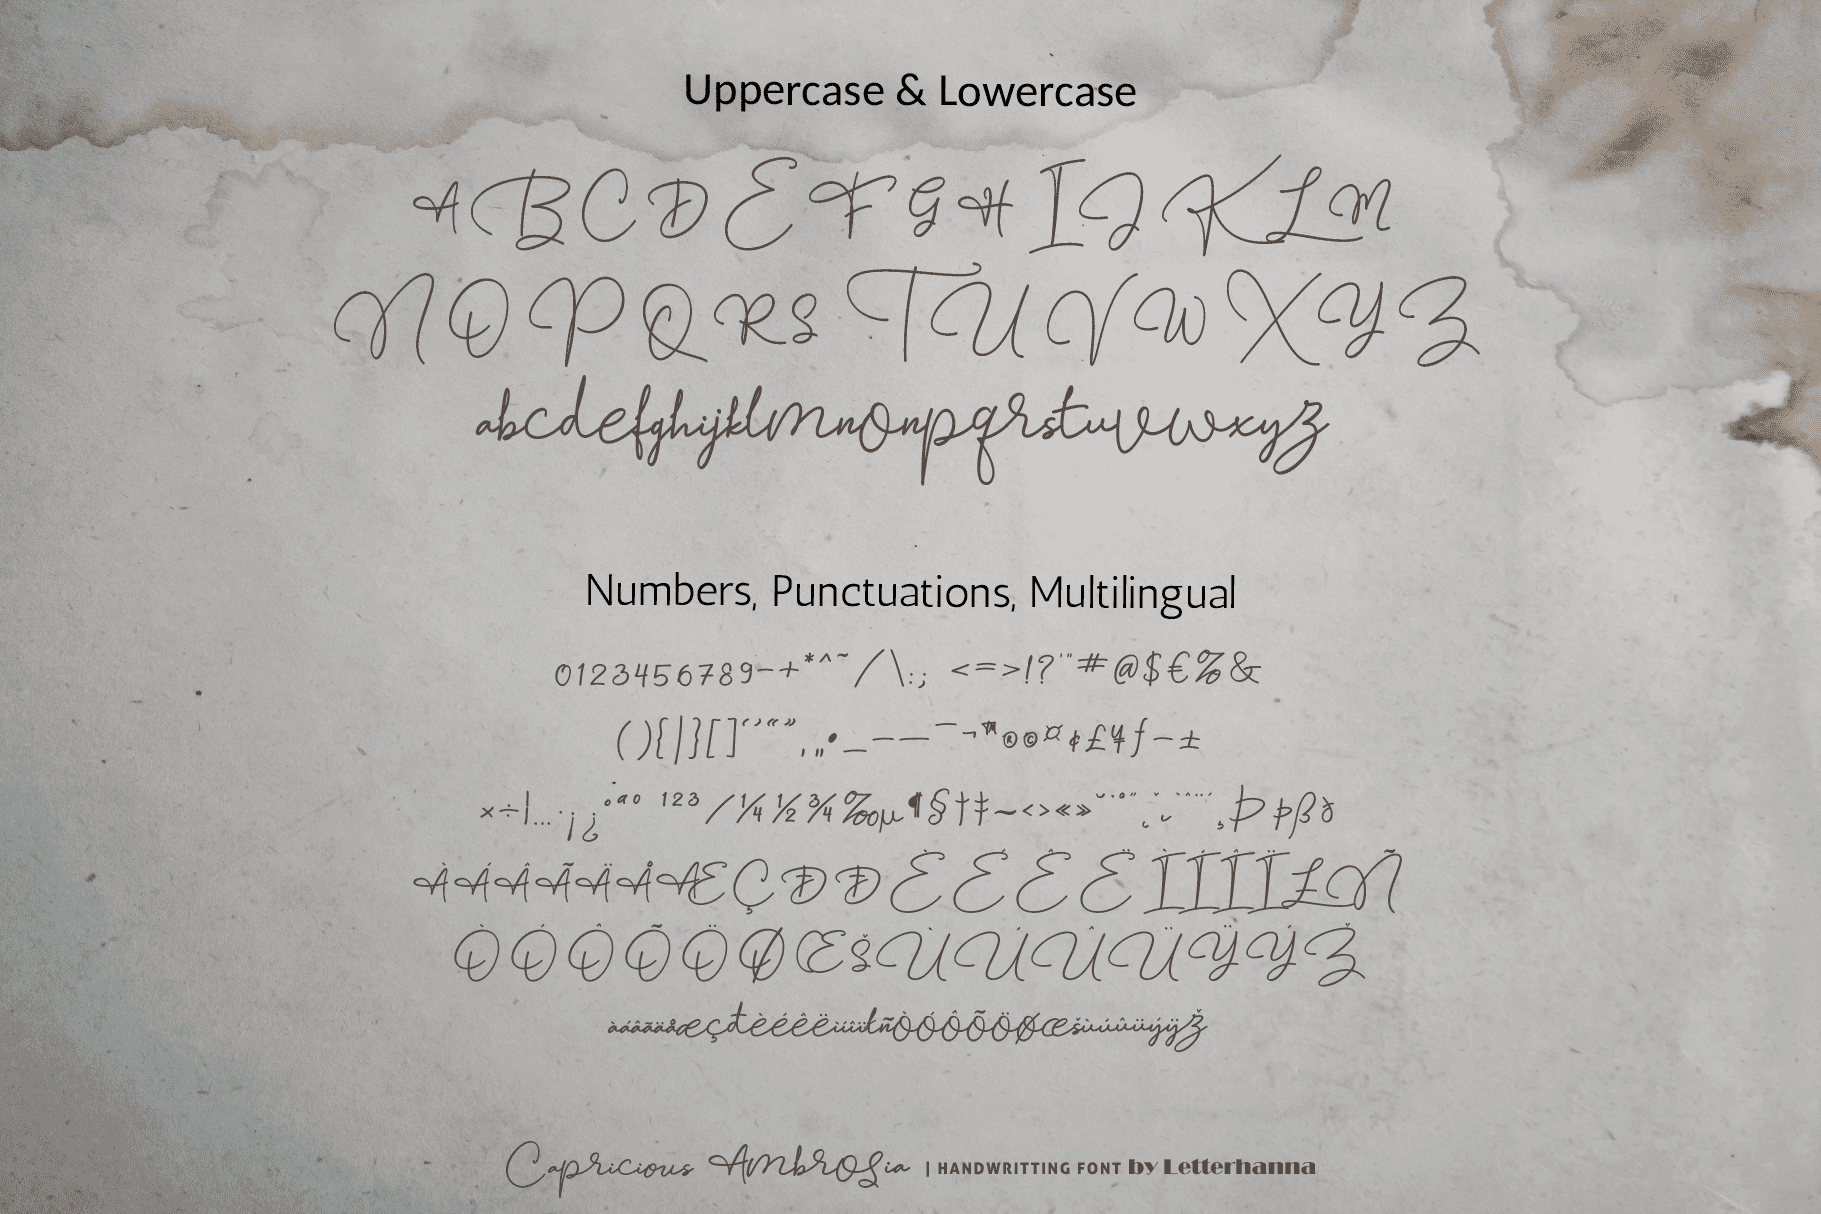 Uppercase & Lowercase
A B C D E F G H I J K L M
N O P Q R S T U V W X Y Z
abcdefghijklmnonpqrstuvwxyz
Numbers, Punctuations, Multilingual
0123456789-+*^~/\:; <=>!?'"#@$€%&
(){|}[]‘’“”‚„•_–—¯¬™®©¤¢£¥ƒ−±
×÷|…·¡¿°ªº ¹²³⁄¼½¾‰µ¶§†‡~‹›«» Þþßð
ÀÁÂÃÄÅÆÇĐÐÈÉÊËÌÍÎÏŁÑ
ÒÓÔÕÖØŒŠÙÚÛÜŸÝŽ
àáâãäåæçđèéêëìíîïłñòóôõöøœšùúûüýÿž
Capricious Ambrosia | HANDWRITTING FONT by Letterhanna